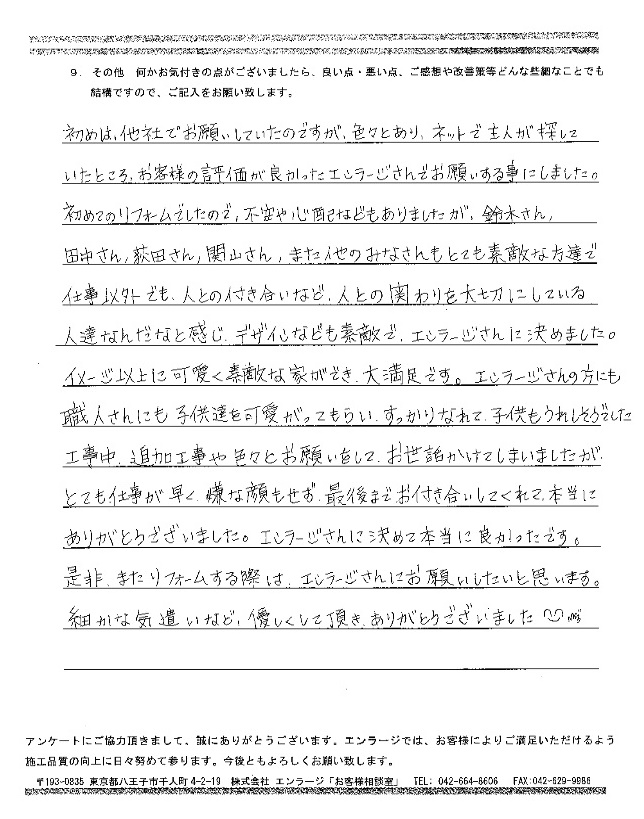 9. その他 何かお気付きの点がございましたら、良い点・悪い点、ご感想や改善策等どんな些細なことでも
結構ですので、ご記入をお願い致します。
初めは、他社でお願いしていたのですが、色々とあり、ネットで主人が探して
いたところ、お客様の評価が良かったエンラージさんでお願いする事にしました。
初めてのリフォームでしたので、不安や心配などもありましたが、鈴木さん、
田中さん、荻田さん、関山さん、また他のみなさんもとても素敵な方達で
仕事以外でも、人との付き合いなど、人との関わりを大切にしている
人達なんだなと感じ、デザインなども素敵で、エンラージさんに決めました。
イメージ以上に可愛く素敵な家ができ、大満足です。エンラージさんの方にも
職人さんにも子供達を可愛がってもらい、すっかりなれて、子供もうれしそうでした
工事中、追加工事や色々とお願いをして、お世話かけてしまいましたが、
とても仕事が早く、嫌な顔もせず、最後までお付き合いしてくれて、本当に
ありがとうございました。エンラージさんに決めて本当に良かったです。
是非、またリフォームする際は、エンラージさんにお願いしたいと思います。
細かな気遣いなど、優しくして頂き、ありがとうございました
アンケートにご協力頂きまして、誠にありがとうございます。エンラージでは、お客様によりご満足いただけるよう
施工品質の向上に日々努めて参ります。今後ともよろしくお願い致します。
〒193-0835 東京都八王子市千人町4-2-19 株式会社 エンラージ「お客様相談室」 TEL: 042-664-8606 FAX:042-629-9986